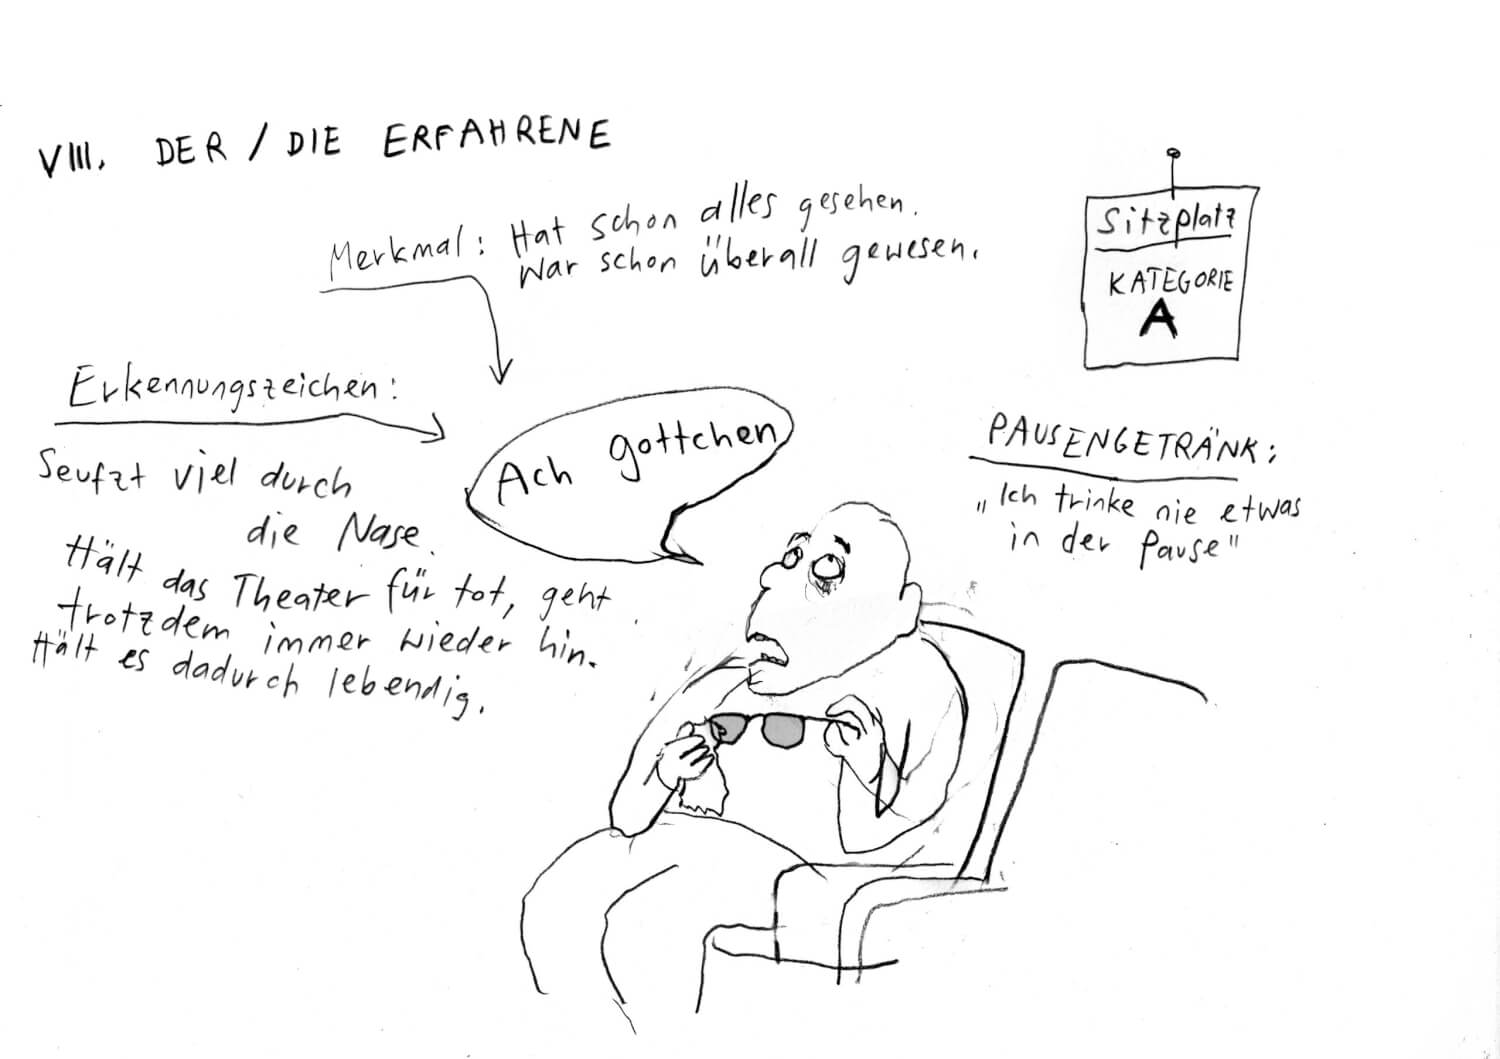 VIII. DER / DIE ERFAHRENE
Merkmal: Hat schon alles gesehen.
War schon überall gewesen.
Sitzplatz
KATEGORIE
A
Erkennungszeichen:
Seufzt viel durch
die Nase.
Hält das Theater für tot, geht
trotzdem immer wieder hin.
Hält es dadurch lebendig.
Ach gottchen
PAUSENGETRÄNK:
„Ich trinke nie etwas
in der Pause"